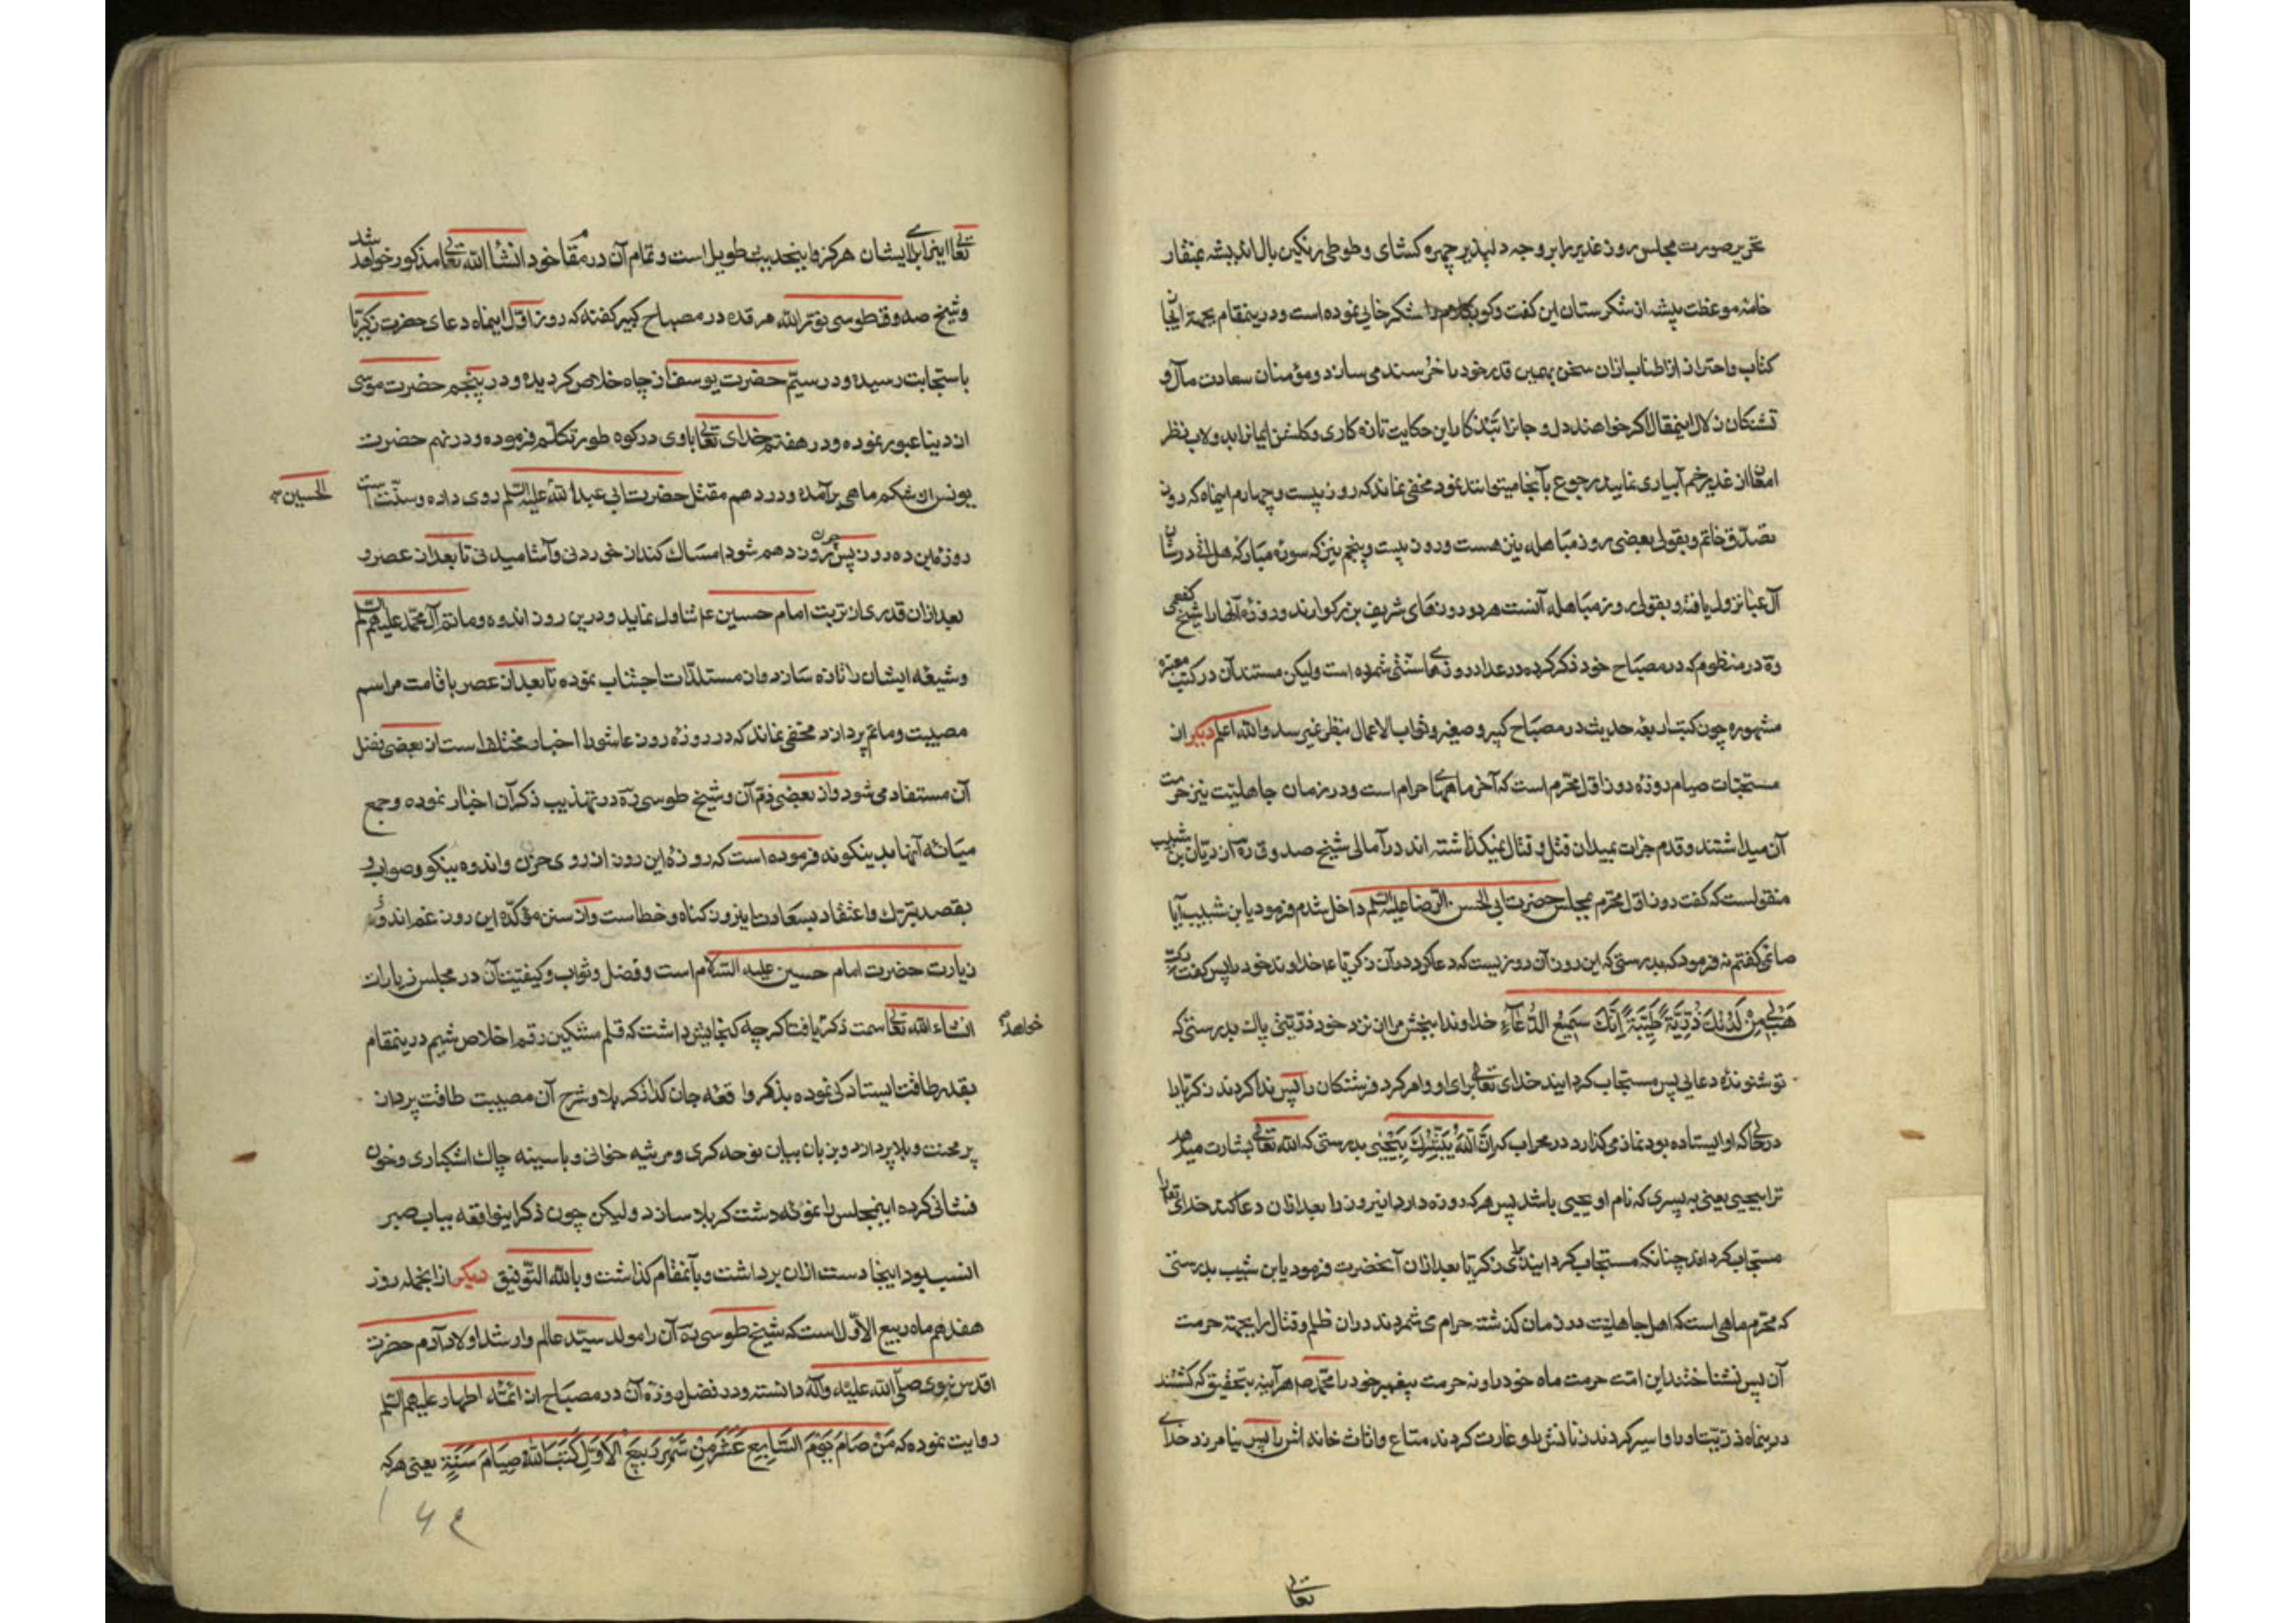 تحریر صورت مجلس روز غدیر را بر وجه دلپذیر چهره کشای و طوطی رنکین بال اندیشه بمنقار
خامهٔ موعظت پیشه از شکرستان این کفت وکوی شکرخایی نموده است و درینمقام بجهة
کتاب و احتراز از اطناب ازان سخن بهمین قدر خود را خرسند می سازد و مؤمنان سعادت مآل و
تشنکان زلال اینمقال اکر خواهند دل و جانرا این حکایت تازه کاری و کلشن ایمانرا بدولاب نظر
امعان از غدیر خم آبیاری نمایند رجوع بآنجا میتوانند نمود مخفی نماند که روز بیست و چهارم اینماه که روز
تصدّق خاتم و بقولی بعضی روز مباهله نیز هست و روز بیست و پنجم نیز که سورهٔ مبارکه هل اتی در شان
آل عبا نزول یافته و بقولی روز مباهله آنست هر دو روزهای شریف بزرکوارند و روزهٔ آنها را شیخ کفعمی
ره در منظومه که در مصباح خود ذکر کرده در عداد روزهای سنّتی شمرده است ولیکن مستند آن در کتب معتبره
مشهوره چون کتب اربعهٔ حدیث و مصباح کبیر و صغیر و ثواب الاعمال بنظر نمیرسد والله اعلم دیکر از
مستحبّات صیام روزهٔ روز اوّل محرم است که آخر ماههای حرام است و در زمان جاهلیّت نیز حرمت
آن میداشتند و قدم جرات بمیدان قتل و قتال نمیکذاشته اند در آمالی شیخ صدوق ره از ریّان بن شبیب
منقولست که کفت روز اوّل محرم بمجلس حضرت ابی الحسن الرّضا علیه السّلم داخل شدم فرمود یابن شبیب آیا
صائمی کفتم نه فرمود که بدرستی که این روز آن روزیست که دعا کرد در آن زکریّا ع خداوند خود را پس کفت ربّ
هَبْ لِی مِنْ لَدُنْكَ ذُرِّیَّةً طَیِّبَةً اِنَّكَ سَمِیعُ الدُّعَآءِ خداوندا ببخش مرا از نزد خود ذرّیّتی پاك بدرستی که
تو شنوندهٔ دعایی پس مستجاب کردانید خدای تعالی برای او و امر کرد فرشتکان را پس ندا کردند زکریّا را
در حالی که او ایستاده بود نماز می کذارد در محراب که اِنَّ اللّهَ یُبَشِّرُكَ بِیَحْیٰی بدرستی که الله تعالی بشارت میدهد
ترا بیحیی یعنی به پسری که نام او یحیی باشد پس هر که روزه دارد اینروز را بعد ازان دعا کند خدای تعالی را
مستجاب کرداند چنانکه مستجاب کردانید برای زکریّا بعد ازان آنحضرت فرمود یابن شبیب بدرستی
که محرّم ماهی است که اهل جاهلیّت در زمان کذشته حرام می شمردند دران ظلم و قتال را بجهة حرمت
آن پس نشناختند این امّت حرمت ماه خود را و نه حرمت پیغمبر خود را محمّد ص هر آینه بتحقیق که کشتند
درینماه ذرّیّت او را و اسیر کردند زنانش را و غارت کردند متاع و اثاث خانه اش را پس نیامرزد خدای
تعالی
تعالی اینرا برای ایشان هرکز و اینحدیث طویل است و تمام آن در مقام خود انشا الله تعالی مذکور خواهد شد
و شیخ صدوق طوسی نوّر الله مرقده در مصباح کبیر کفته که روز اوّل اینماه دعای حضرت زکریّا
باستجابت رسیده و در سیّم حضرت یوسف از چاه خلاص کردیده و در پنجم حضرت موسی
از دریا عبور نموده و در هفتم خدای تعالی با وی در کوه طور تکلّم فرموده و در نهم حضرت
یونس از شکم ماهی برآمده و در دهم مقتل حضرت ابی عبد الله علیه السّلم روی داده و سنّت است
الحسین
روزهٔ این ده روز پس چون روز دهم شود امساك کند از خوردنی و آشامیدنی تا بعد از عصر و
بعد ازان قدری از تربت امام حسین ع تناول نماید و درین روز اندوه و ماتم آل محمّد علیهم السّلم
و شیعهٔ ایشان را تازه سازد و از مستلذّات اجتناب نموده تا بعد از عصر باقامت مراسم
مصیبت و ماتم پردازد مخفی نماند که در روزهٔ روز عاشورا اخبار مختلف است از بعضی فضل
آن مستفاد می شود و از بعضی ذمّ آن و شیخ طوسی ره در تهذیب ذکر آن اخبار نموده و جمع
میانهٔ آنها بدینکونه فرموده است که روزهٔ این روز از روی حزن و اندوه نیکو و صواب و
بقصد تبرّك و اعتقاد بسعادت اینروز کناه و خطاست و از سنن مؤکّدهٔ این روز غم اندوز
زیارت حضرت امام حسین علیه السّلام است و فضل و ثواب و کیفیّت آن در مجلس زیارات
انشاء الله تعالی سمت ذکر یافت اکرچه کنجایش داشت که قلم مشکین رقم اخلاص شیم درینمقام
خواهد
بقدر طاقت ایستادکی نموده بذکر واقعهٔ جان کداز کربلا و شرح آن مصیبت طاقت پرداز
پر محنت و بلا پردازد و بزبان بیان نوحه کری و مرثیه خوانی و با سینه چاك اشکباری و خون
فشانی کرده اینمجلس را نمونهٔ دشت کربلا سازد ولیکن چون ذکر اینواقعه بباب صبر
انسب بود اینجا دست ازان برداشت و بآنمقام کذاشت و بالله التّوفیق دیکر ازانجمله روز
هفدهم ماه ربیع الاوّل است که شیخ طوسی ره آن را مولد سیّد عالم و ارشد اولاد آدم حضرت
اقدس نبوی صلّی الله علیه وآله دانسته و در فضل روزهٔ آن در مصباح از ائمّهٔ اطهار علیهم السّلم
روایت نموده که مَنْ صَامَ یَوْمَ السَّابِعِ عَشَرَ مِنْ شَهْرِ رَبِیعِ الْاَوَّلِ کَتَبَ اللّهُ صِیَامَ سَنَةٍ یعنی هر که